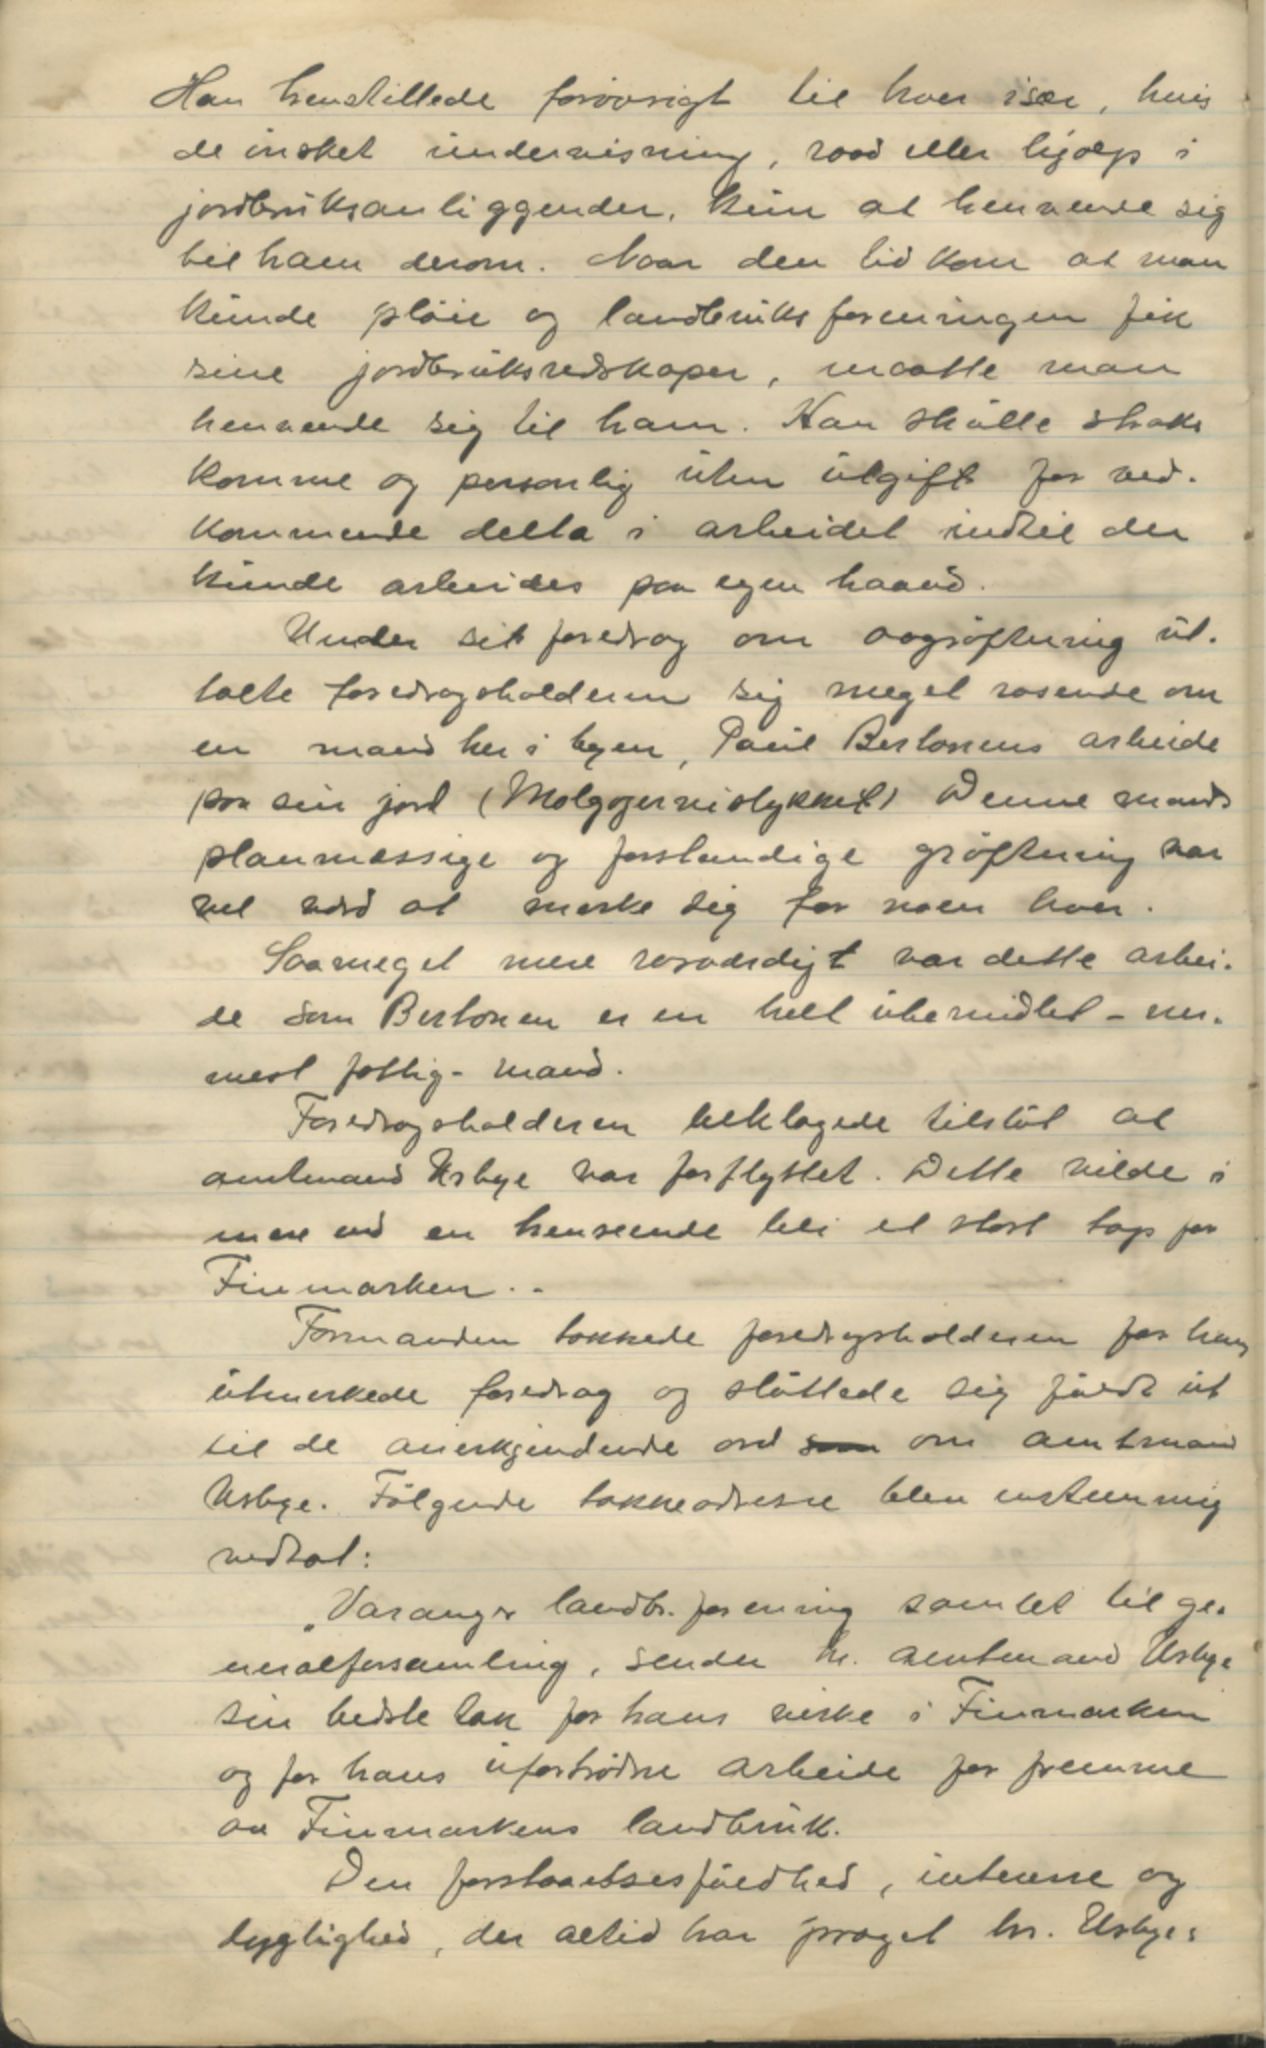 Han henstillede forøvrigt til hver især, hvis
de ønsket undervisning, raad eller hjælp i
jordbruksanliggender, kun at henvende sig
til ham derom. Naar den tid kom at man
kunde pløie og landbruksforeningen fik
sine jordbruksredskaper, maatte man
henvende sig til ham. Han skulle straks
komme og personlig uten utgift for ved-
kommende delta i arbeidet indtil der
kunde arbeides paa egen haand.
Under sit foredrag om avgrøftning ut-
talte foredragsholderen sig meget rosende om
en mand her i byen, Paul Bertonens arbeide
paa sin jord ( Denne mands
planmessige og forstandige grøftning var
vel værd at merke sig for noen hver.
Saameget mere rosværdigt var dette arbei-
de som Bertonen er en helt ubemidlet - nær-
mest fattig - mand.
Foredragsholderen beklagede tilslut at
amtmand Urbye var forflyttet. Dette vilde i
mere end en henseende bli et stort tap for
Finmarken. -
Formanden takkede foredragsholderen for hans
utmerkede foredrag og sluttede sig fuldt ut
til de anerkjendende ord som om amtmand
Urbye. Følgende takkeadresse blev enstemmig
vedtat:
"Varanger landbr. forening samlet til ge-
neralforsamling, sender hr. amtmand Urbye
sin bedste tak for hans virke i Finmarken
og for hans ufortrødne arbeide for fremme
av Finmarkens landbruk.
Den forstaaelsesfuldhed, interesse og
dygtighed, der altid har præget hr. Urbyes